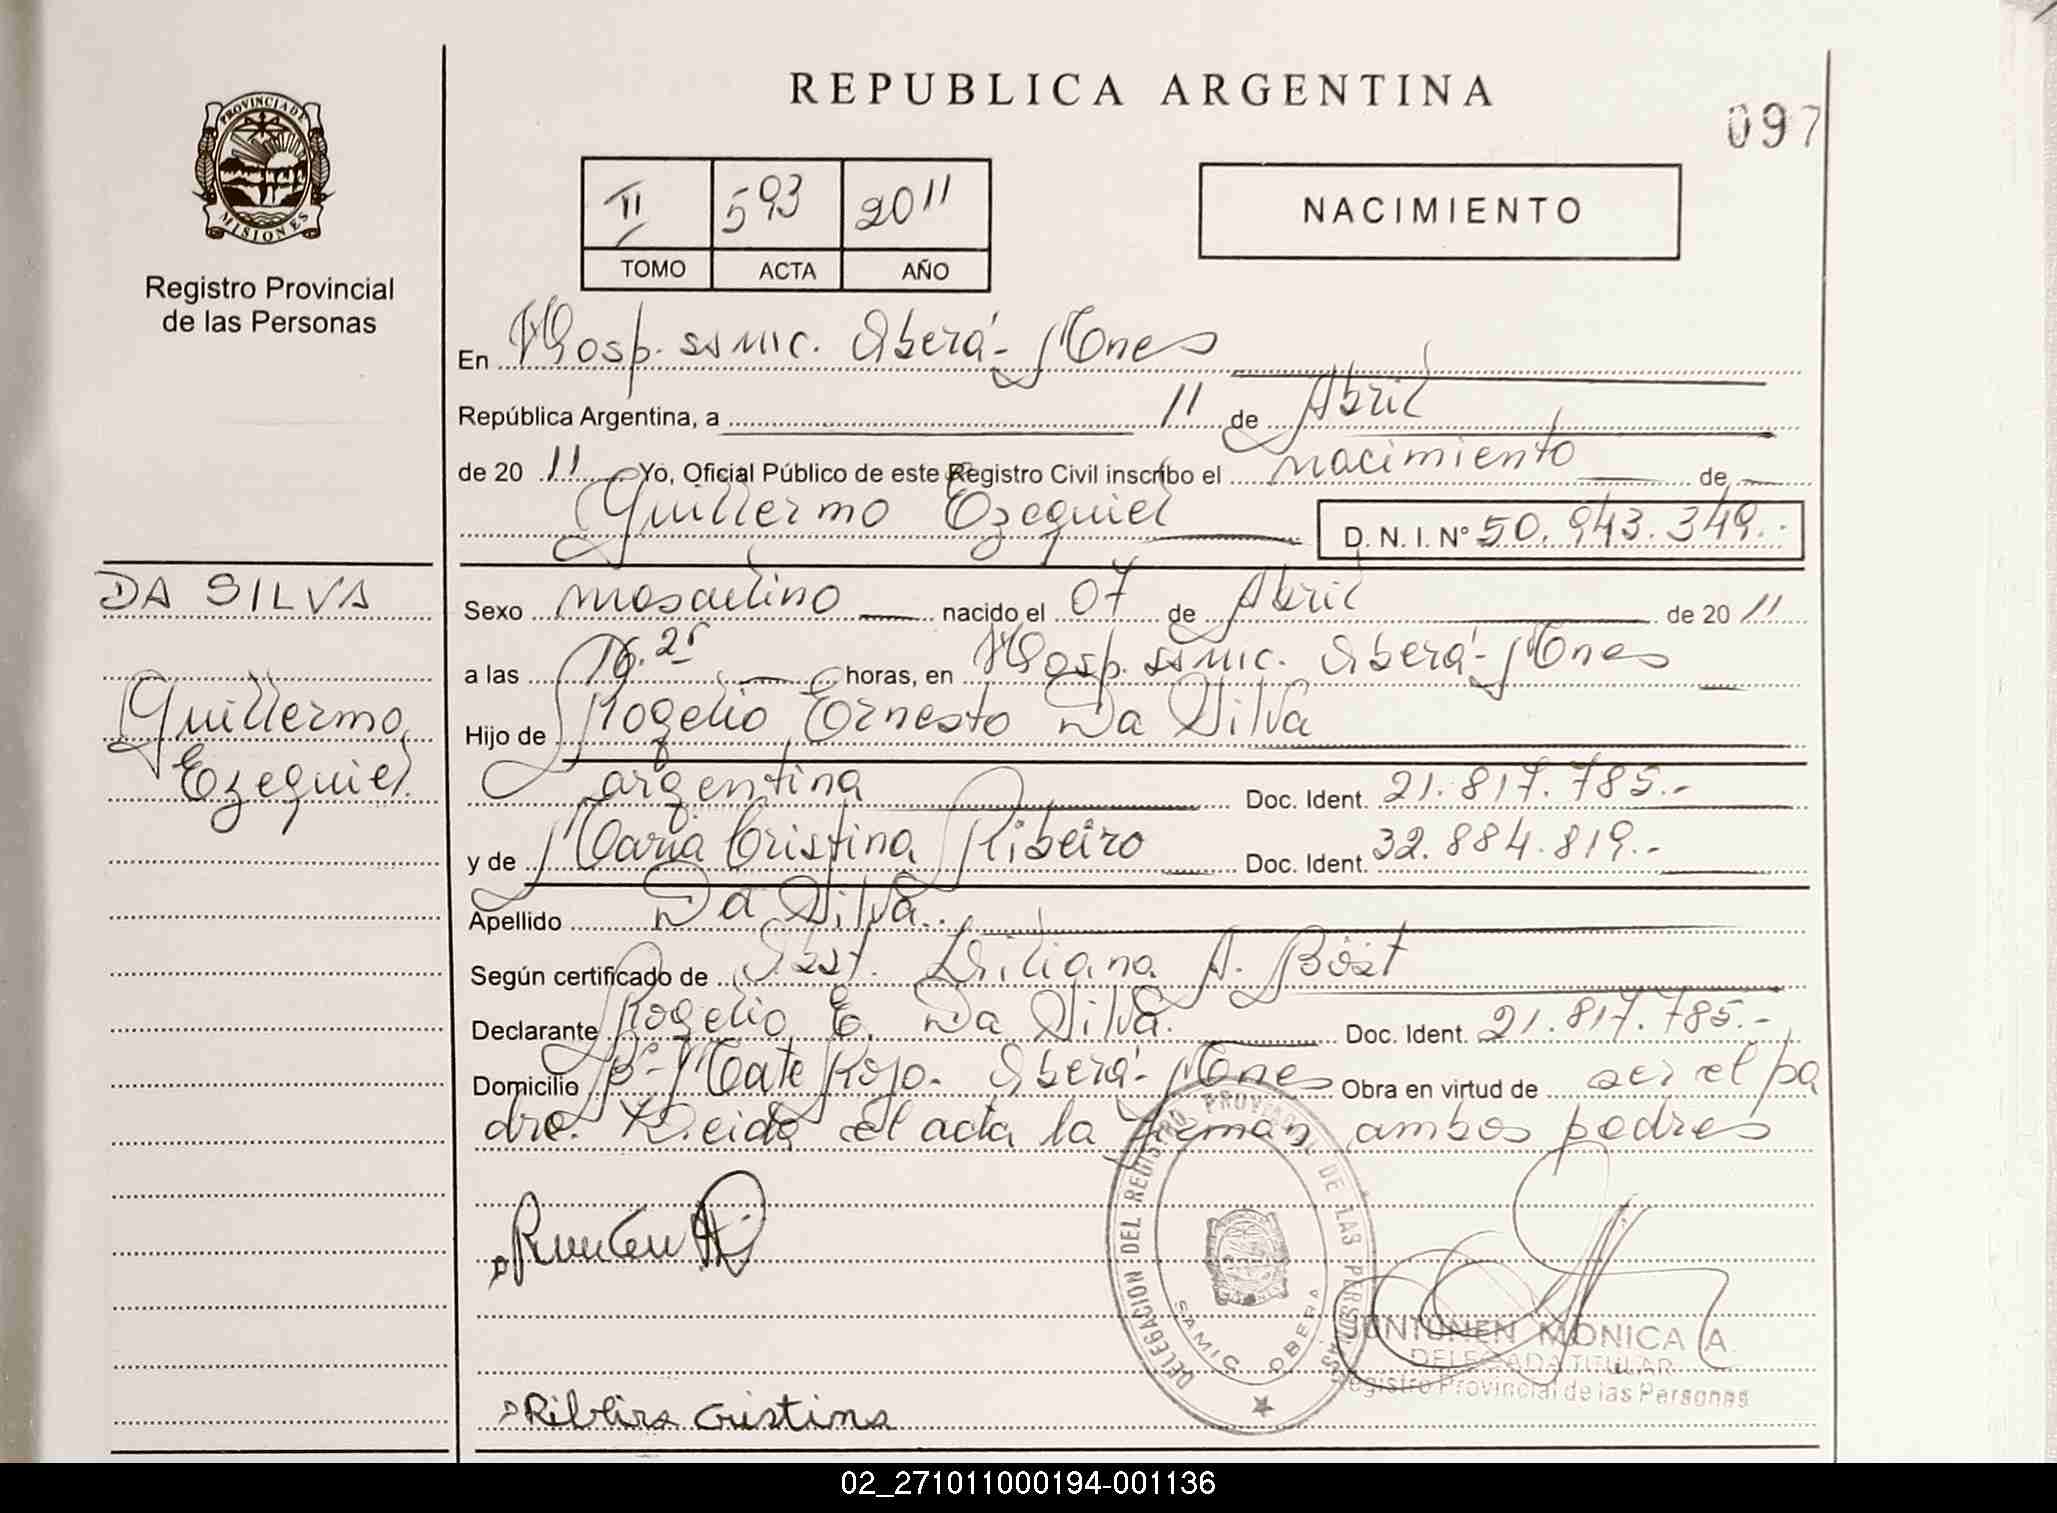 REPUBLICA ARGENTINA
097
PROVINCIA DE
MISIONES
Registro Provincial
de las Personas
II 593 2011
TOMO ACTA AÑO
NACIMIENTO
En Hosp. SAMIC. Oberá- Mnes
República Argentina, a 11 de Abril
de 20 11 Yo, Oficial Público de este Registro Civil inscribo el nacimiento de
Guillermo Ezequiel D. N. I. Nº 50.943.349.-
DA SILVA
Guillermo
Ezequiel
Sexo masculino nacido el 07 de Abril de 20 11
a las 16.25 horas, en Hosp. SAMIC. Oberá- Mnes
Hijo de Rogelio Ernesto Da Silva
argentina Doc. Ident. 21.817.785.-
y de Maria Cristina Ribeiro Doc. Ident. 32.884.819.-
Apellido Da Silva.
Según certificado de Obst. Liliana A. Böst
Declarante Rogelio E. Da Silva. Doc. Ident. 21.817.785.-
Domicilio Bº- Mate Rojo. Oberá- Mnes Obra en virtud de ser el pa
dre. Leida el acta la firman ambos padres
DELEGACION DEL REGISTRO PROVINCIAL DE LAS PERSONAS
SAMIC OBERA
JUNTUNEN MONICA A.
DELEGADA TITULAR
Registro Provincial de las Personas
Ribeiro Cristina
02_271011000194-001136